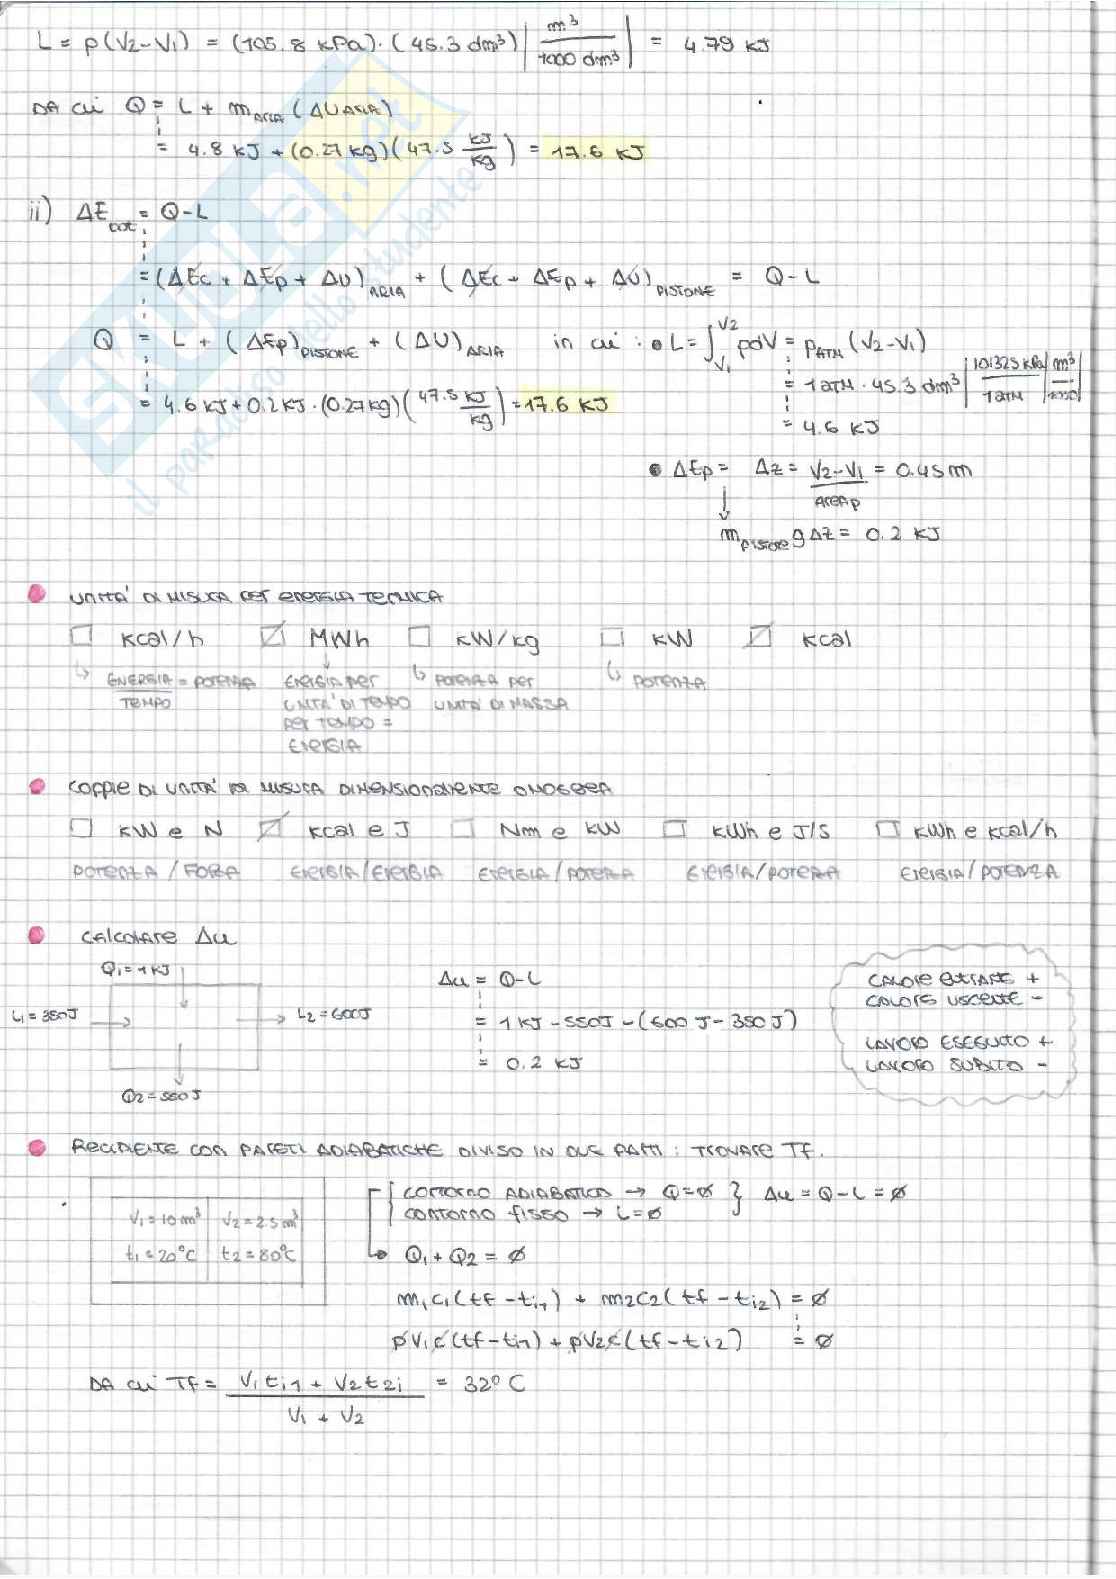 L = p(V2-V1) = (105.8 kPa)·(45.3 dm³)| m³ / 1000 dm³ | = 4.79 kJ
DA CUI Q = L + m ARIA (ΔU ARIA)
= 4.8 kJ + (0.27 kg)(47.5 kJ/kg) = 17.6 kJ
ii) ΔEtot = Q-L
= (ΔEc + ΔEp + ΔU) ARIA + (ΔEc + ΔEp + ΔU) PISTONE = Q-L
Q = L + (ΔEp) PISTONE + (ΔU) ARIA in cui : • L = ∫ V1 V2 pdV = pATM (V2-V1)
= 4.6 kJ + 0.2 kJ · (0.27 kg)(47.5 kJ/kg) = 17.6 kJ
= 1 ATM · 45.3 dm³ | 101325 kPa / 1 ATM | m³ / 1000 |
= 4.6 kJ
• ΔEp = Δz = V2-V1 / AREAp = 0.45 m
m pistone g Δz = 0.2 kJ
SKUOLA.net
il paradiso dello studente
UNITA' DI MISURA PER ENERGIA TERMICA
☐ kcal/h ☑ MWh ☐ kW/kg ☐ kW ☑ kcal
ENERGIA / TEMPO = POTENZA
ENERGIA PER UNITA' DI TEMPO PER TEMPO = ENERGIA
POTENZA PER UNITA' DI MASSA
POTENZA
COPPIE DI UNITA' DI MISURA DIMENSIONALMENTE OMOGENEA
☐ kW e N ☑ kcal e J ☐ Nm e kW ☐ kWh e J/S ☐ kWh e kcal/h
POTENZA / FORZA ENERGIA/ENERGIA ENERGIA/POTENZA ENERGIA/POTENZA ENERGIA/POTENZA
CALCOLARE Δu
Q1 = 1 kJ
L1 = 350J
L2 = 600J
Q2 = 550J
Δu = Q-L
= 1 kJ - 550J - (600 J - 350 J)
= 0.2 kJ
CALORE ENTRANTE +
CALORE USCENTE -
LAVORO ESEGUITO +
LAVORO SUBITO -
RECIPIENTE CON PARETI ADIABATICHE DIVISO IN DUE PARTI : TROVARE Tf.
V1 = 10 m³ V2 = 2.5 m³
t1 = 20°C t2 = 80°C
CONTORNO ADIABATICO → Q=Ø } Δu = Q-L = Ø
CONTORNO FISSO → L=Ø
Q1 + Q2 = Ø
m1c1(tf-ti1) + m2c2(tf-ti2) = Ø
ρV1c(tf-ti1) + ρV2c(tf-ti2) = Ø
DA CUI Tf = V1ti1 + V2t2i / V1 + V2 = 32°C